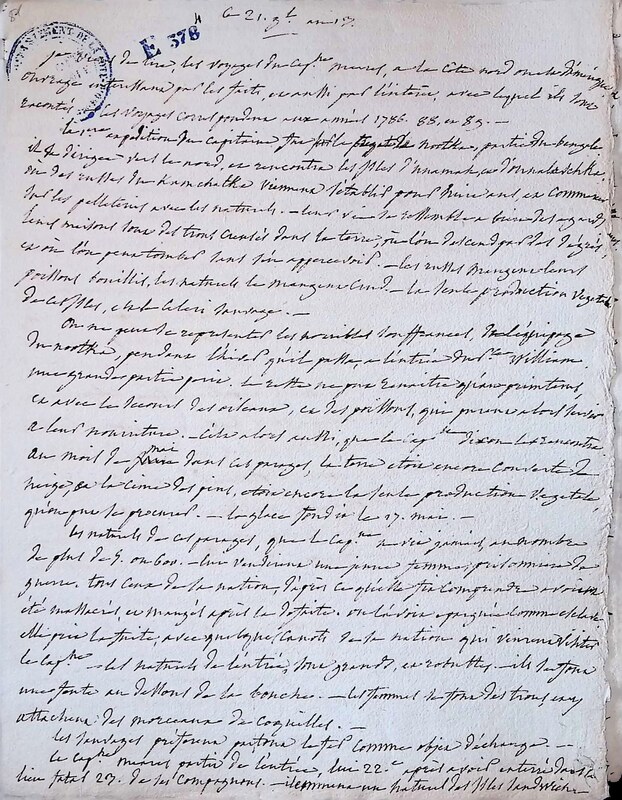 ce 21. 9.bre an 13.
E 376
DEPARTEMENT DE LA
je viens de lire, les voyages du Cap.ne meares, a la Côte nord ouest de l'amérique
ouvrage interessant par les faits, et aussi par l'interêt, avec lequel ils sont
racontés. Les voyages correspondent aux années 1786. 88. et 89. —
la 1ere expedition du Capitaine fut nootka, partie du bengale
il se dirigea vers le nord, et rencontra les isles d'
où des russes du Kamchatka viennent s'etablir pour huit ans, et commercer
sur les pelleteries avec les naturels. — leur vie ressemble a
leurs maisons sont des trous creusés dans la terre, où l'on descend par des degrés
et où l'on peut tomber sans s'en appercevoir. — les russes mangent leurs
poissons bouillis, les naturels le mangent crud. — la seule production vegetale
de ces isles, c'est le celeri sauvage. —
On ne peut se representer les horribles souffrances, de l'équipage
du nootka, pendant l'hiver qu'il passa, a l'entrée du P.ce William.
une grande partie perit. le reste ne put renaitre qu'au printems,
et avec le secours des oiseaux, et des poissons, qui purent alors servir
a leur nourriture. — C'est alors aussi, que le Cap.ne dixon les rencontra.
au mois de mai dans ces parages, la terre etoit encore couverte de
neige, et la cime des pins, etoit encore la seule production vegetale,
qu'on put se procurer. — la glace fondit le 17. mai. —
les naturels de ces parages, que le Cap.ne n'a vu jamais, au nombre
de plus de 5. ou 600. — lui vendirent une jeune femme, prisonniere de
guerre. tous ceux de sa nation, d'après ce qu'elle fit comprendre avoient
été massacrés, et mangés après la defaite. on l'avoit epargnée comme esclave
elle prit la fuite, avec quelques canots de sa nation qui vinrent visiter
le cap.ne — les naturels de l'entrée, sont grands, et robustes. — ils se font
une fente au dessous de la bouche. — les femmes se font des trous et y
attachent des morceaux de coquilles. —
les sauvages preferent partout le fer comme objet d'échange. —
le cap.ne meares partit de l'entrée, lui 22.e après avoir enterré dans ce
lieu fatal 23. de ses compagnons. — il emmena un naturel des isles Sandwich